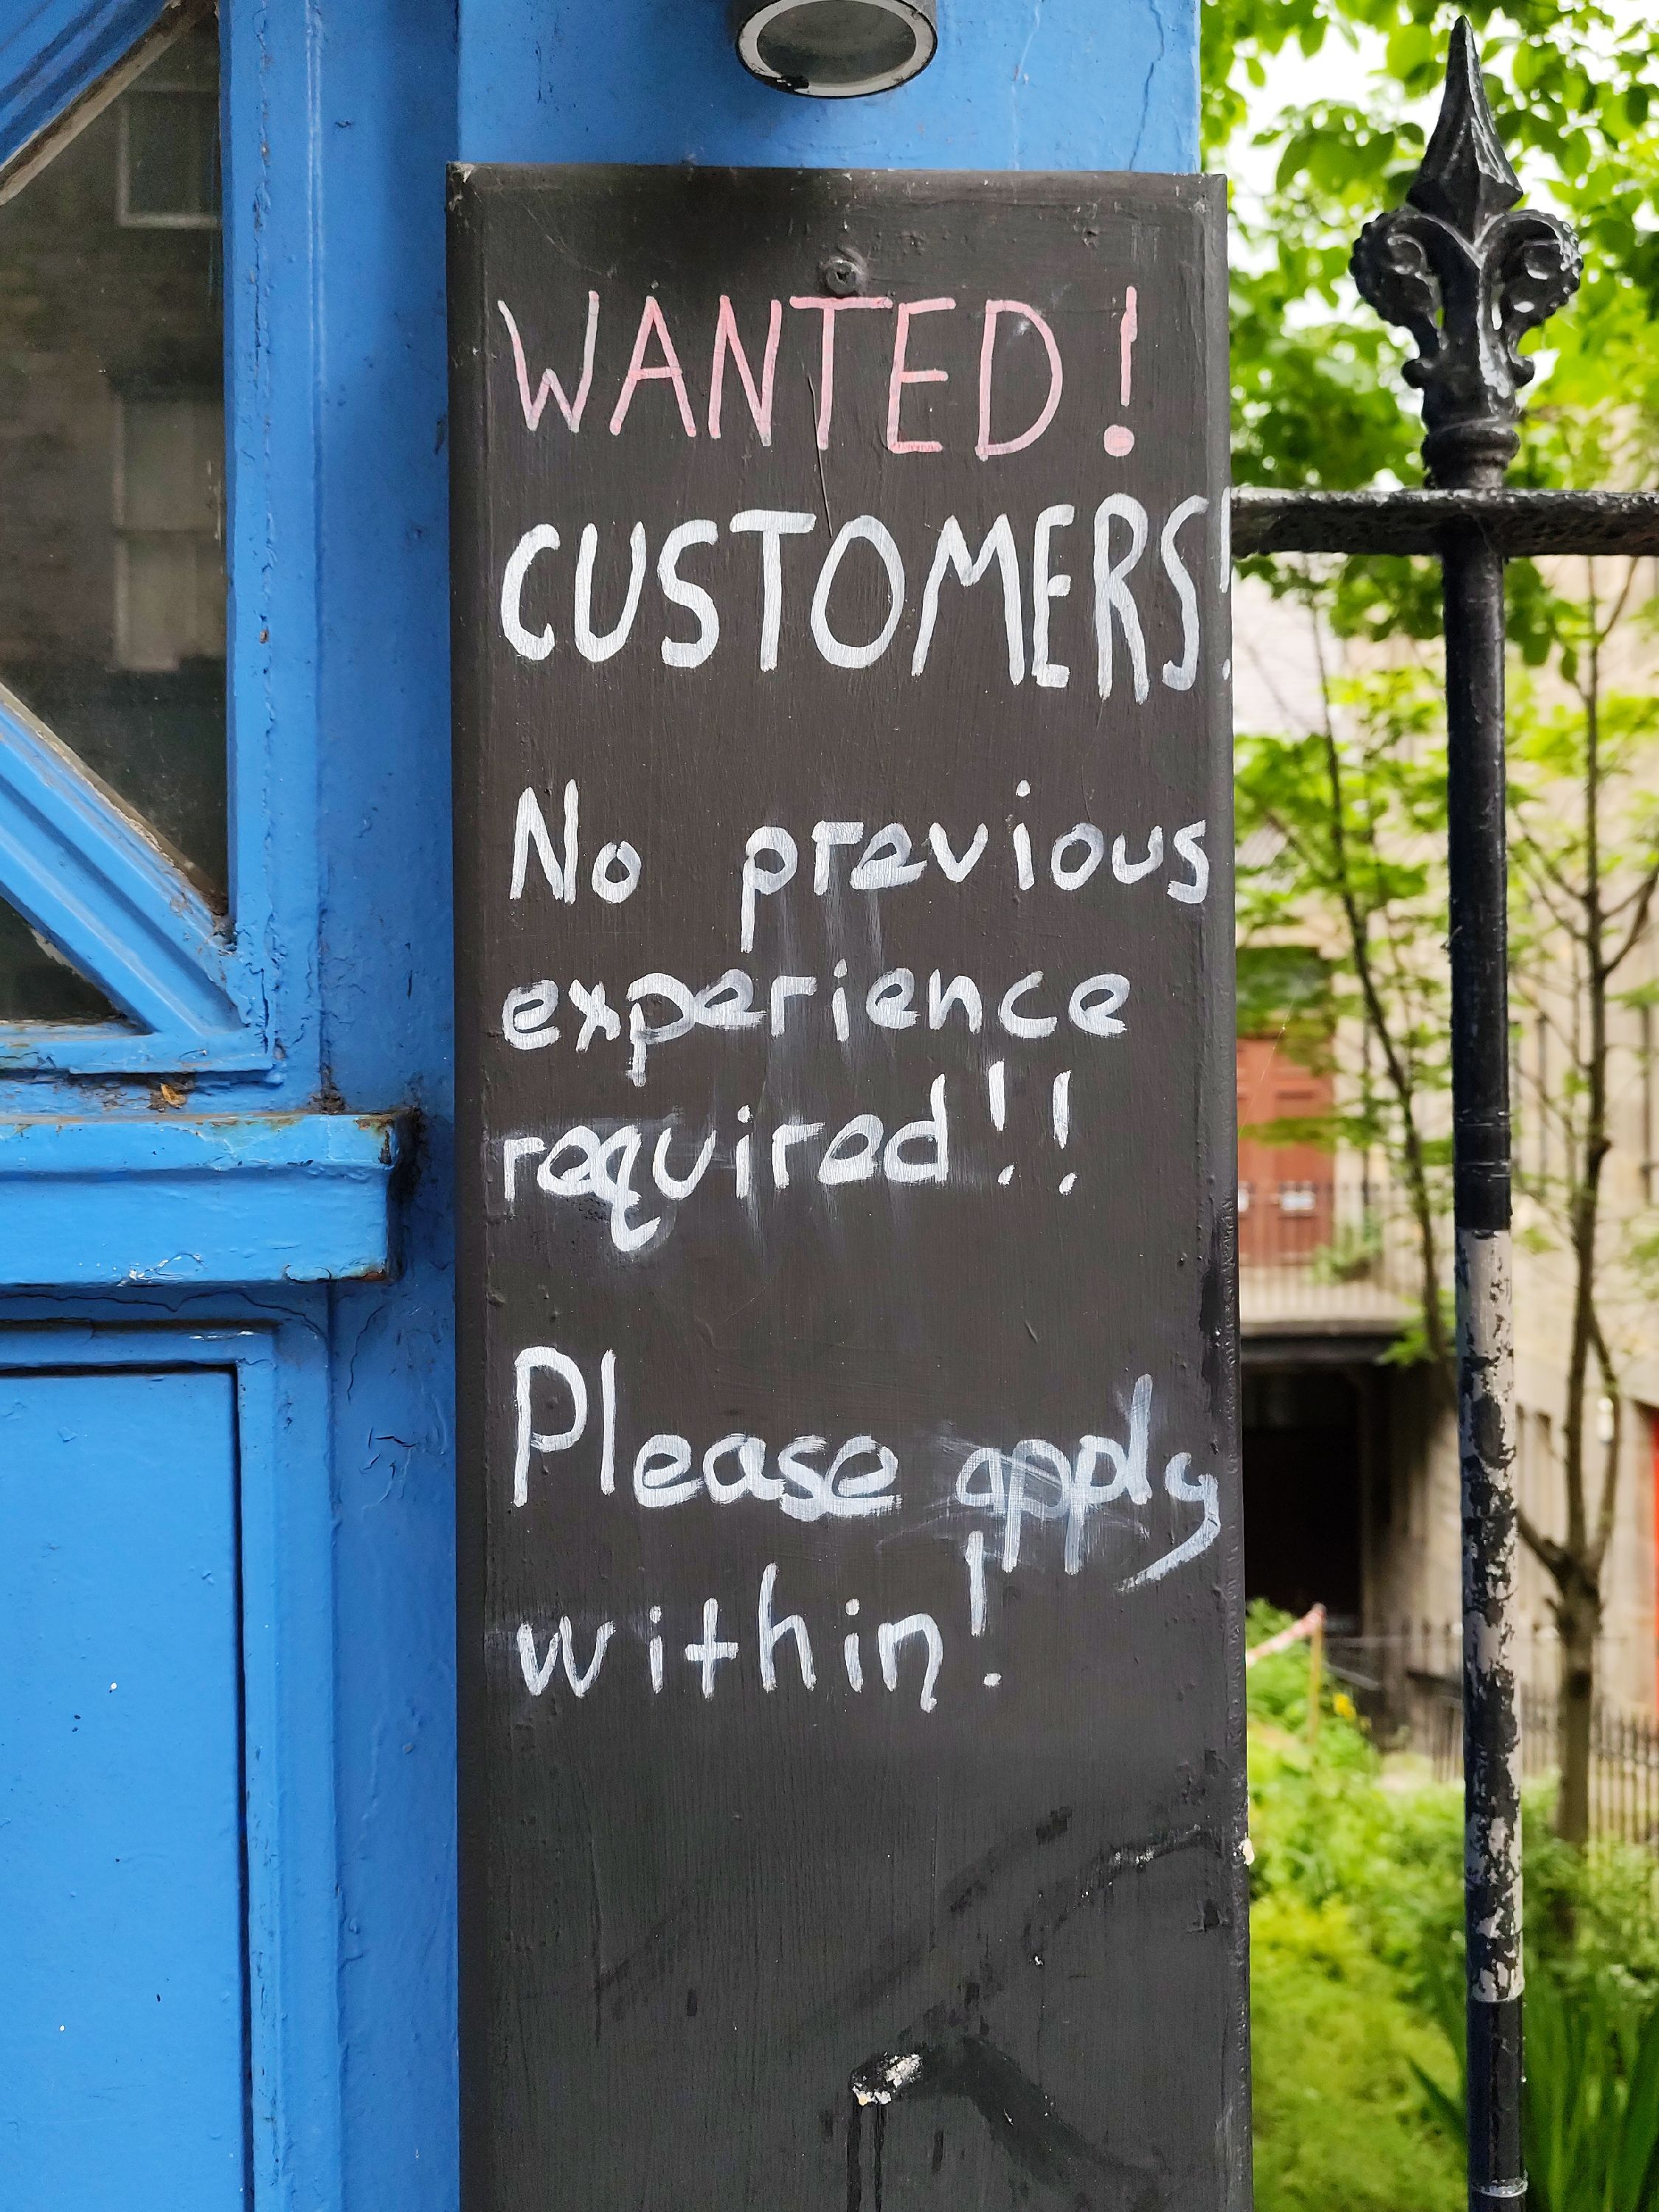 WANTED!
CUSTOMERS!
No previous
experience
required!!
Please apply
within!